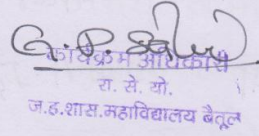 कार्यक्रम अधिकारी
रा. से. यो.
ज.ह.शास.महाविद्यालय बैतूल